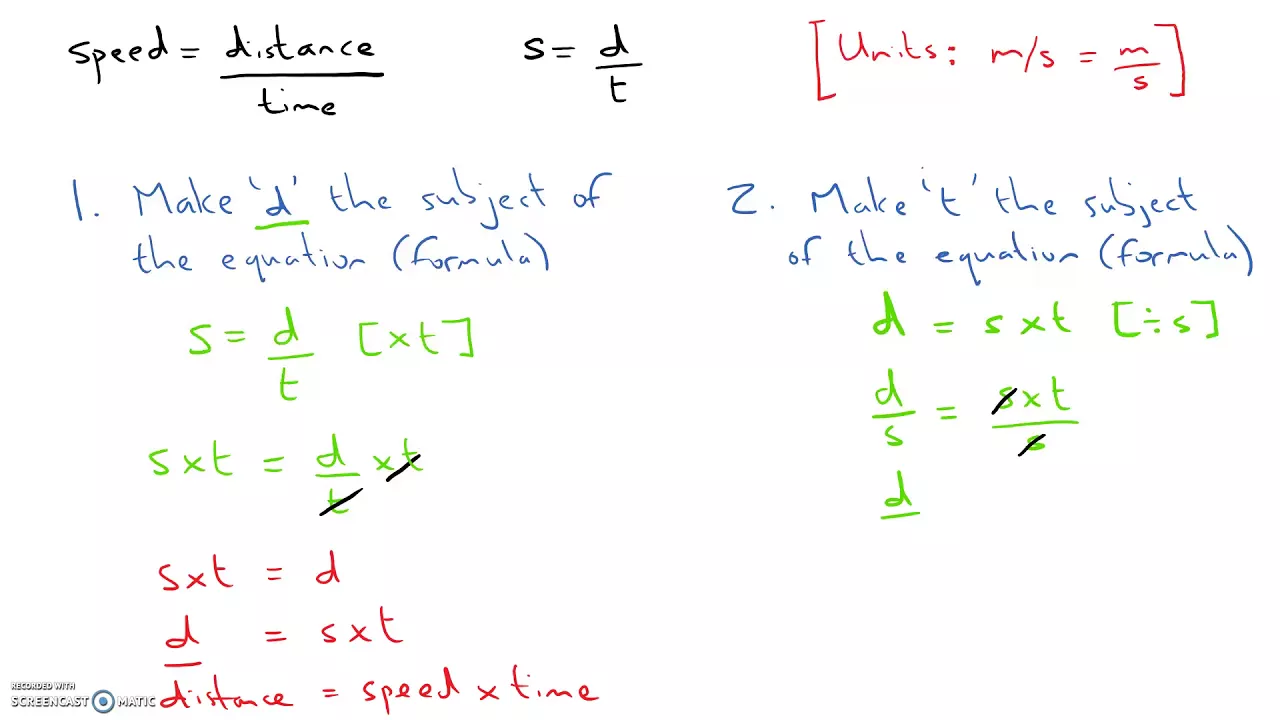 speed = distance / time
s = d / t
[Units: m/s = m / s]
1. Make 'd' the subject of
the equation (formula)
s = d / t [×t]
s×t = d / t ×t
s×t = d
d = s×t
distance = speed × time
2. Make 't' the subject
of the equation (formula)
d = s×t [÷s]
d / s = s×t / s
d
RECORDED WITH
SCREENCAST MATIC